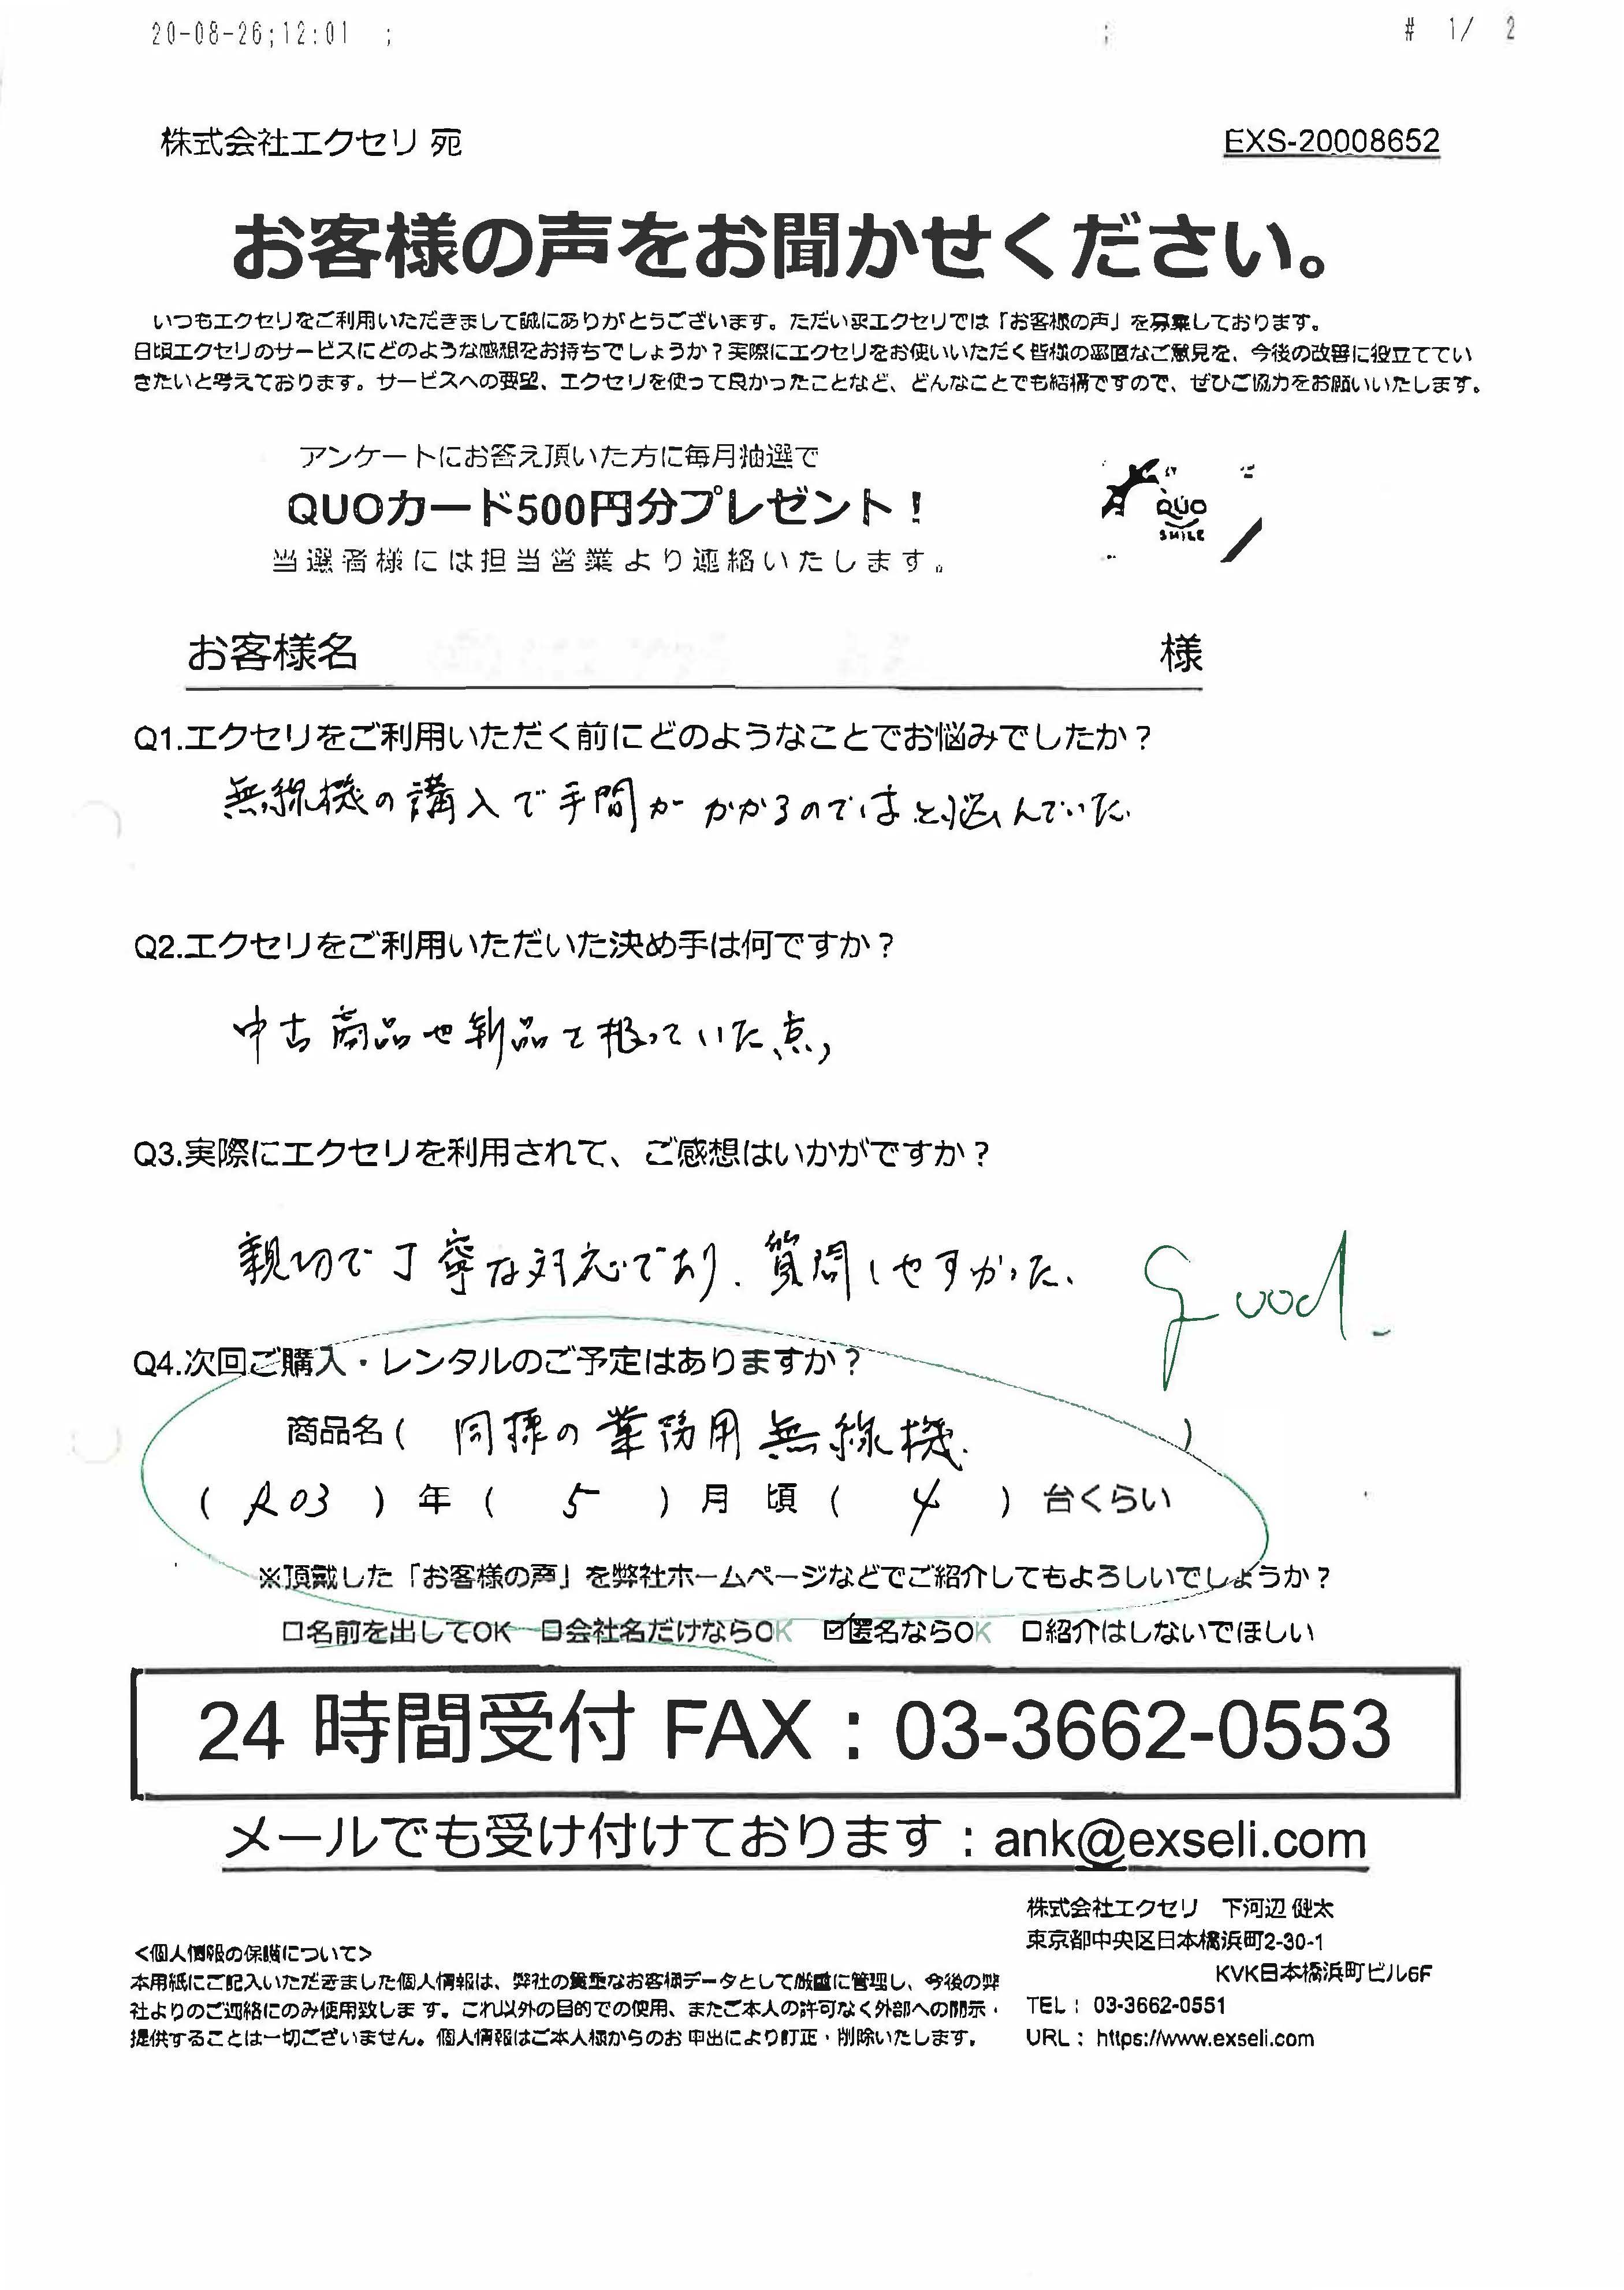 20-08-26;12:01 ; ; # 1/ 2
株式会社エクセリ 宛
EXS-20008652
お客様の声をお聞かせください。
いつもエクセリをご利用いただきまして誠にありがとうございます。ただいまエクセリでは「お客様の声」を募集しております。
日頃エクセリのサービスにどのような感想をお持ちでしょうか？実際にエクセリをお使いいただく皆様の率直なご意見を、今後の改善に役立ててい
きたいと考えております。サービスへの要望、エクセリを使って良かったことなど、どんなことでも結構ですので、ぜひご協力をお願いいたします。
アンケートにお答え頂いた方に毎月抽選で
QUOカード500円分プレゼント！
当選者様には担当営業より連絡いたします。
QUO
SMILE
お客様名 様
Q1.エクセリをご利用いただく前にどのようなことでお悩みでしたか？
無線機の講入で手間がかかるのではと悩んでいた.
Q2.エクセリをご利用いただいた決め手は何ですか？
中古商品や新品を扱っていた点、
Q3.実際にエクセリを利用されて、ご感想はいかがですか？
親切で丁寧な対応であり、質問しやすかった、
good.
Q4.次回ご購入・レンタルのご予定はありますか？
商品名（ 同様の業務用無線機. ）
（ R03 ）年（ 5 ）月 頃（ 4 ）台くらい
※頂戴した「お客様の声」を弊社ホームページなどでご紹介してもよろしいでしょうか？
□名前を出してOK □会社名だけならOK ☑匿名ならOK □紹介はしないでほしい
24 時間受付 FAX：03-3662-0553
メールでも受け付けております：ank@exseli.com
株式会社エクセリ 下河辺 健太
東京都中央区日本橋浜町2-30-1
KVK日本橋浜町ビル6F
TEL： 03-3662-0551
URL： https://www.exseli.com
<個人情報の保護について>
本用紙にご記入いただきました個人情報は、弊社の貴重なお客様データとして厳重に管理し、今後の弊
社よりのご連絡にのみ使用致します。これ以外の目的での使用、またご本人の許可なく外部への開示・
提供することは一切ございません。個人情報はご本人様からのお申出により訂正・削除いたします。